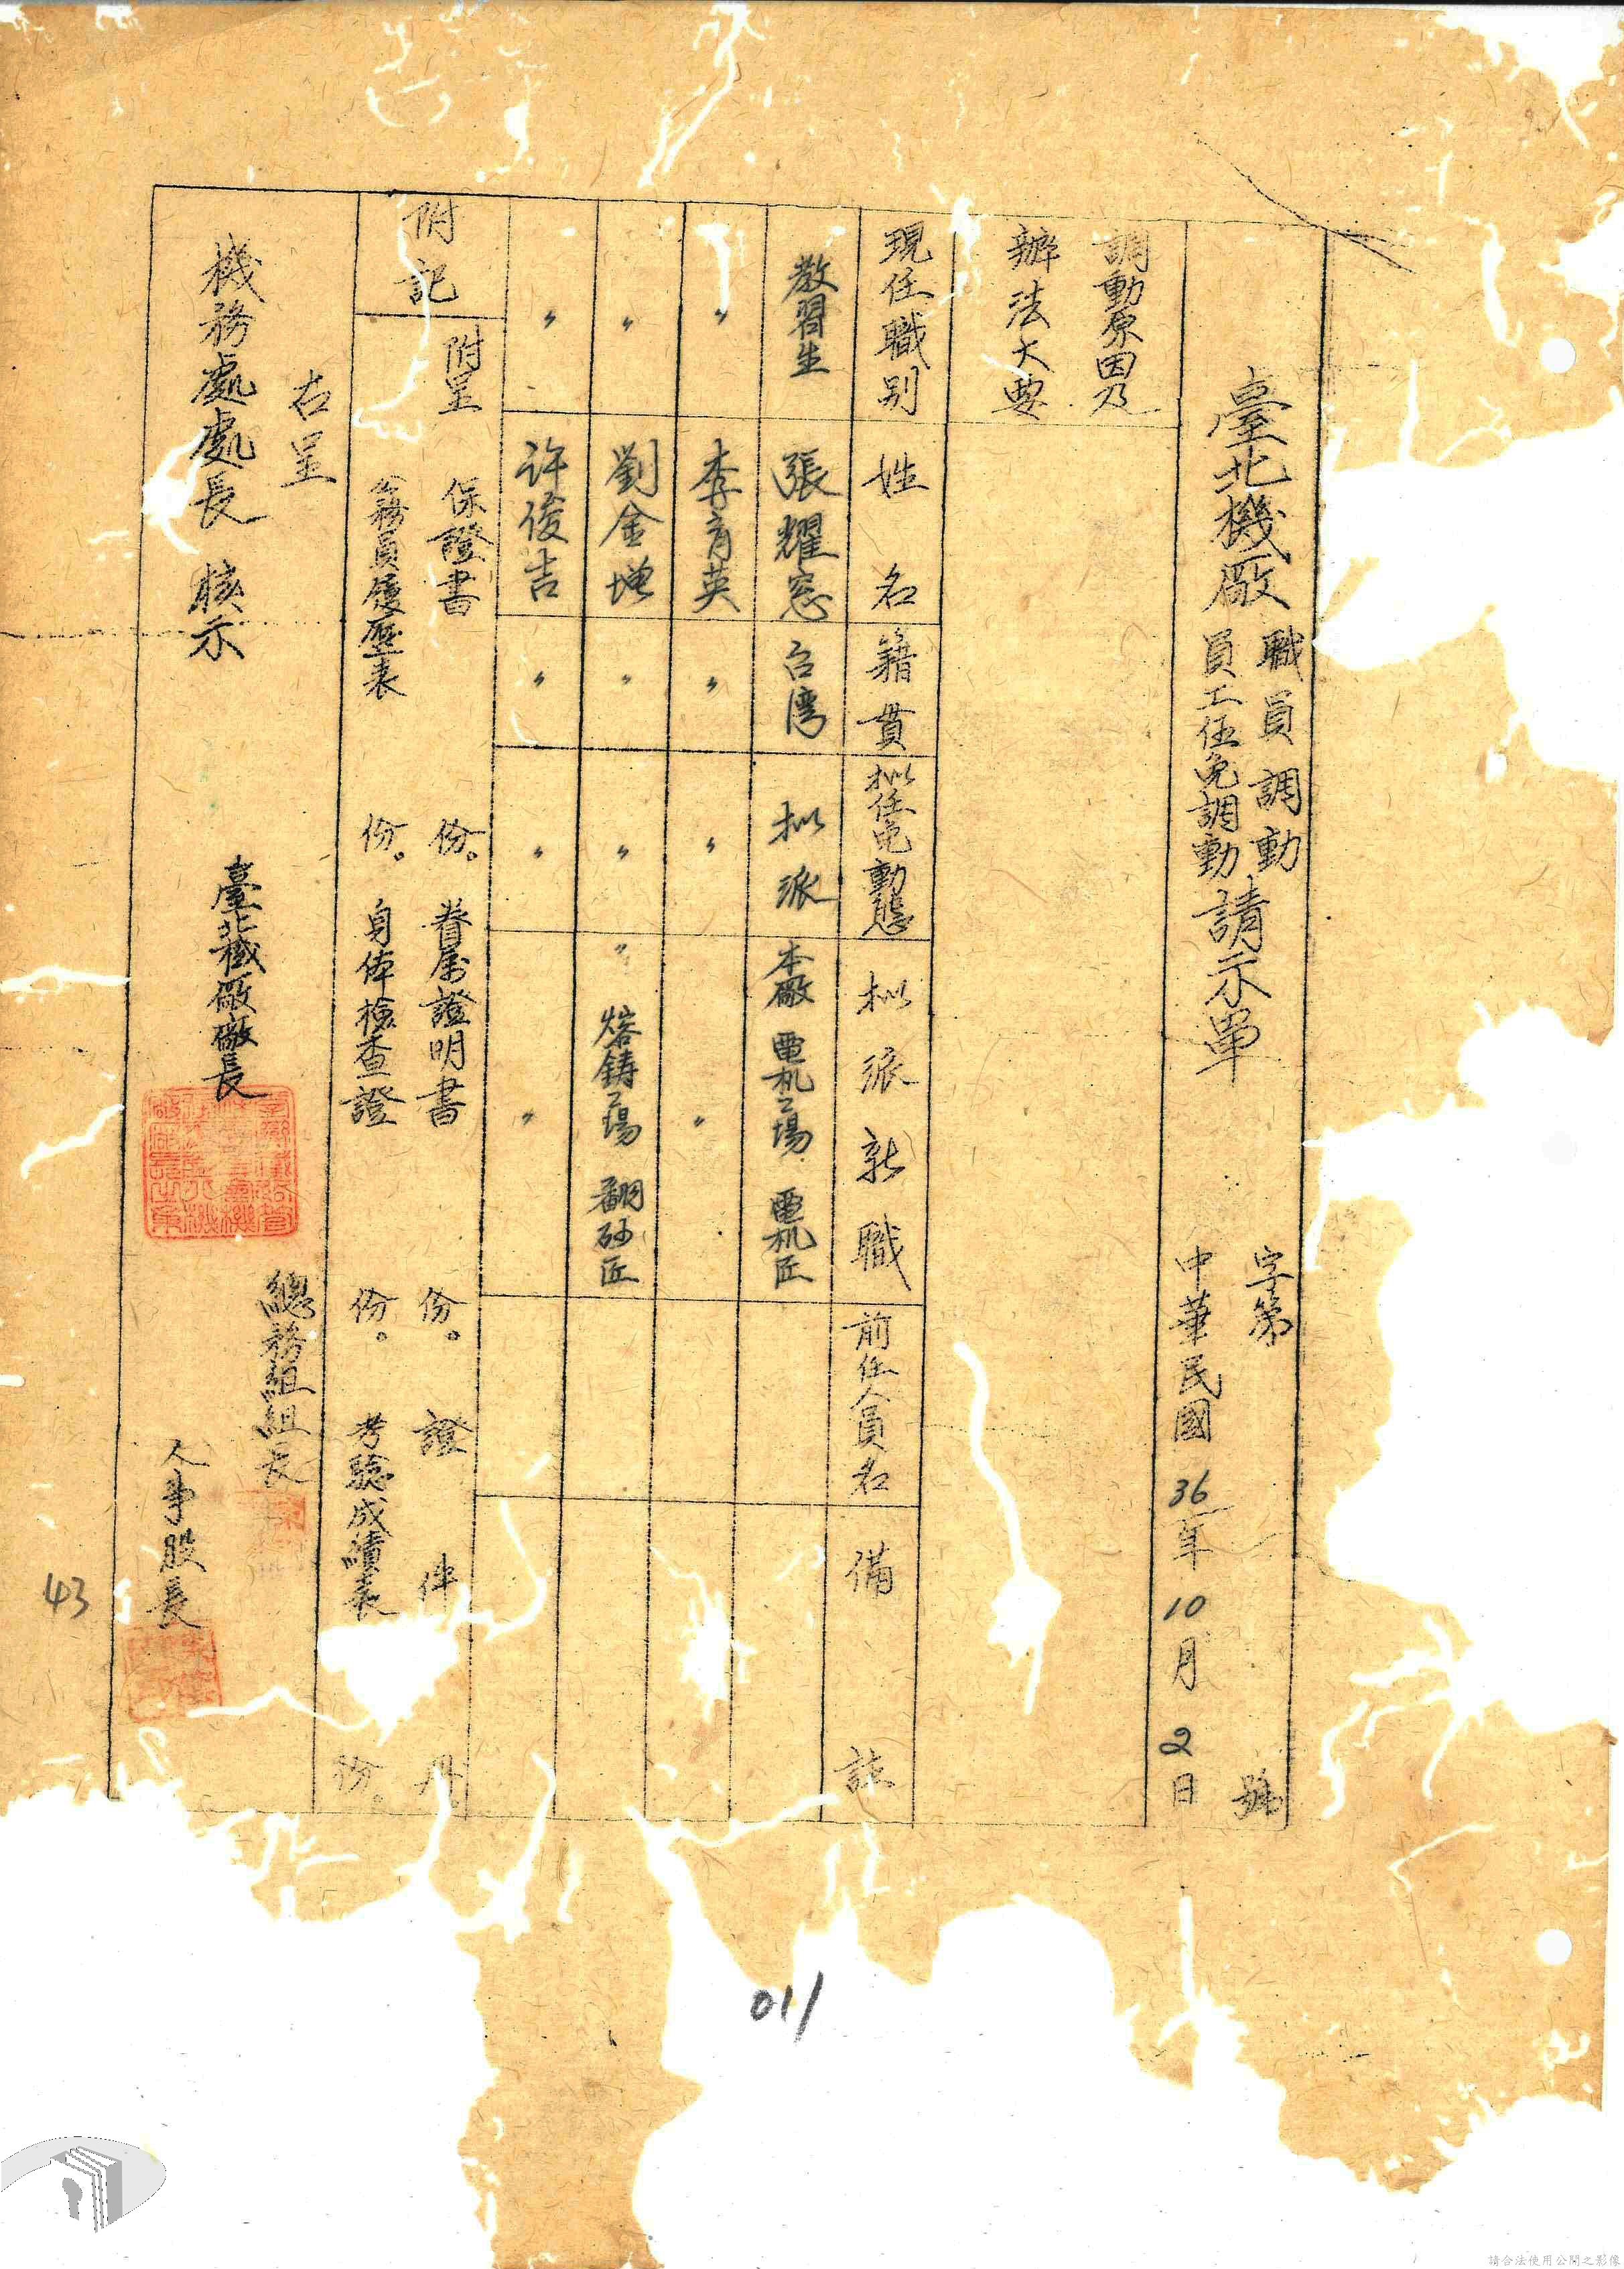 臺北機廠 職員調動 員工任免調動 請示單
字第 號
中華民國 36年 10月 2日
調動原因及
辦法大要
現任職別 姓名 籍貫 拟任免動態 拟派新職 前任人員名 備註
教習生 張耀窓 台湾 拟派 本廠 電机工場 電机匠
〃 李育英 〃 〃 〃
〃 劉金增 〃 〃 〃 熔鋳工場 翻砂匠
〃 許俊吉 〃 〃 〃
附記
附呈 保證書 份。 眷属證明書 份。 證件 件。
公務員履歷表 份。 身体檢查證 份。 考驗成績表 份。
右呈
機務處處長 核示
臺北機廠廠長
總務組組長
人事股長
43
011
請合法使用公開之影像